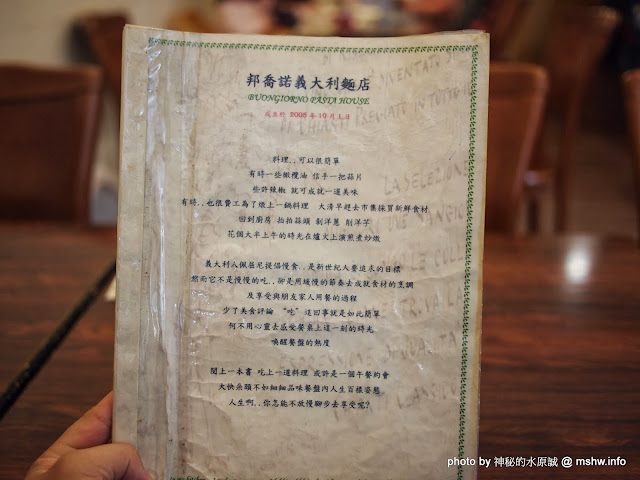 邦喬諾義大利麵店
BUONGIORNO PASTA HOUSE
成立於 2005 年 10 月 1 日
料理..可以很簡單
有時一些橄欖油 信手一把蒜片
些許辣椒 就可成就一道美味
有時..也很費工為了燉上一鍋料理 大清早趕去市集採買新鮮食材
回到廚房 拍拍蒜頭 剝洋蔥 削洋芋
花個大半上午的時光在爐火上演煎煮炒燉
義大利人佩慈尼提倡慢食..是新世紀人要追求的目標
然而它不是慢慢的吃..卻是用緩慢的節奏去成就食材的烹調
及享受與朋友家人用餐的過程
少了美食評論 “吃”這回事就是如此簡單
何不用心靈去感受餐桌上這一刻的時光
喚醒餐盤的熱度
闔上一本書 吃上一道料理 或許是一個午餐約會
大快朵頤不如細細品味餐盤內人生百樣姿態
人生啊..你怎能不放慢腳步去享受呢?
photo by 神秘的水原誠 @ mshw.info